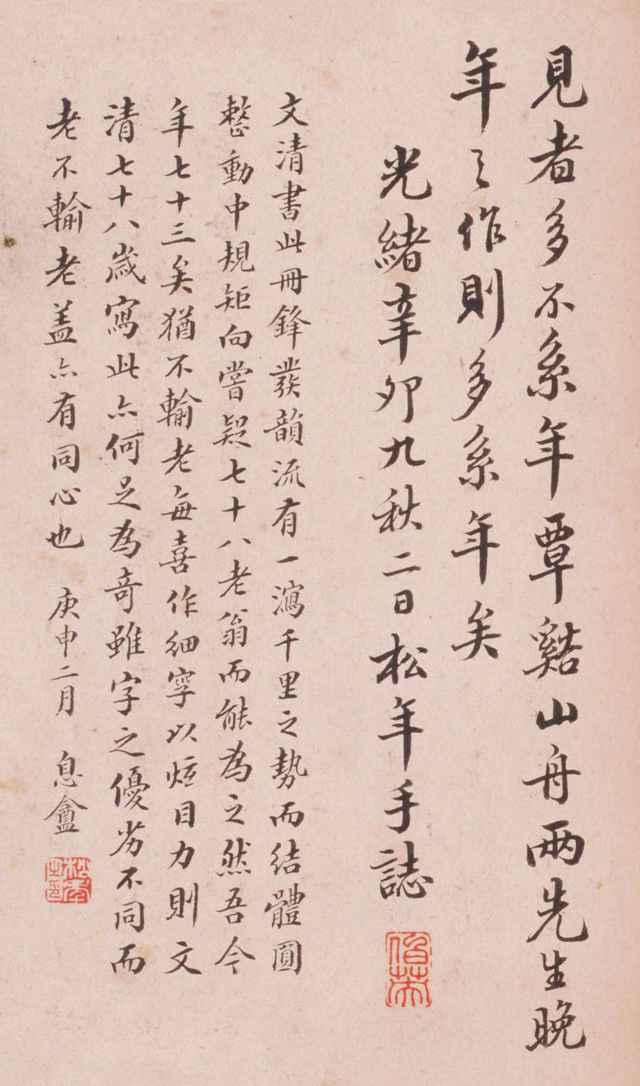 見者多不系年覃谿山舟兩先生晚
年之作則多系年矣
光緒辛卯九秋二日松年手誌
文清書此冊鋒發韻流有一瀉千里之勢而結體圓
整動中規矩向嘗疑七十八老翁而能為之然吾今
年七十三矣猶不輸老每喜作細字以炫目力則文
清七十八歲寫此亦何足為奇雖字之優劣不同而
老不輸老蓋亦有同心也 庚申二月 息盦